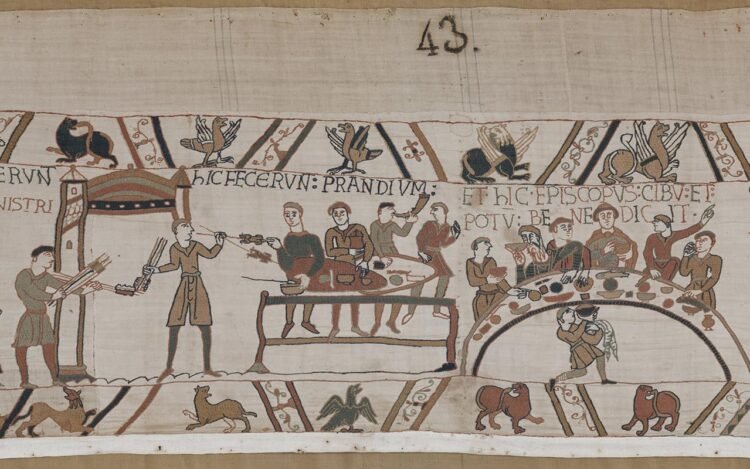 43.
ERVN
NISTRI
hIC FECERVN: PRANDIVM:
ET hIC·EPISCOPVS:CIBV:ET·
POTV: BE NE DIC IT·